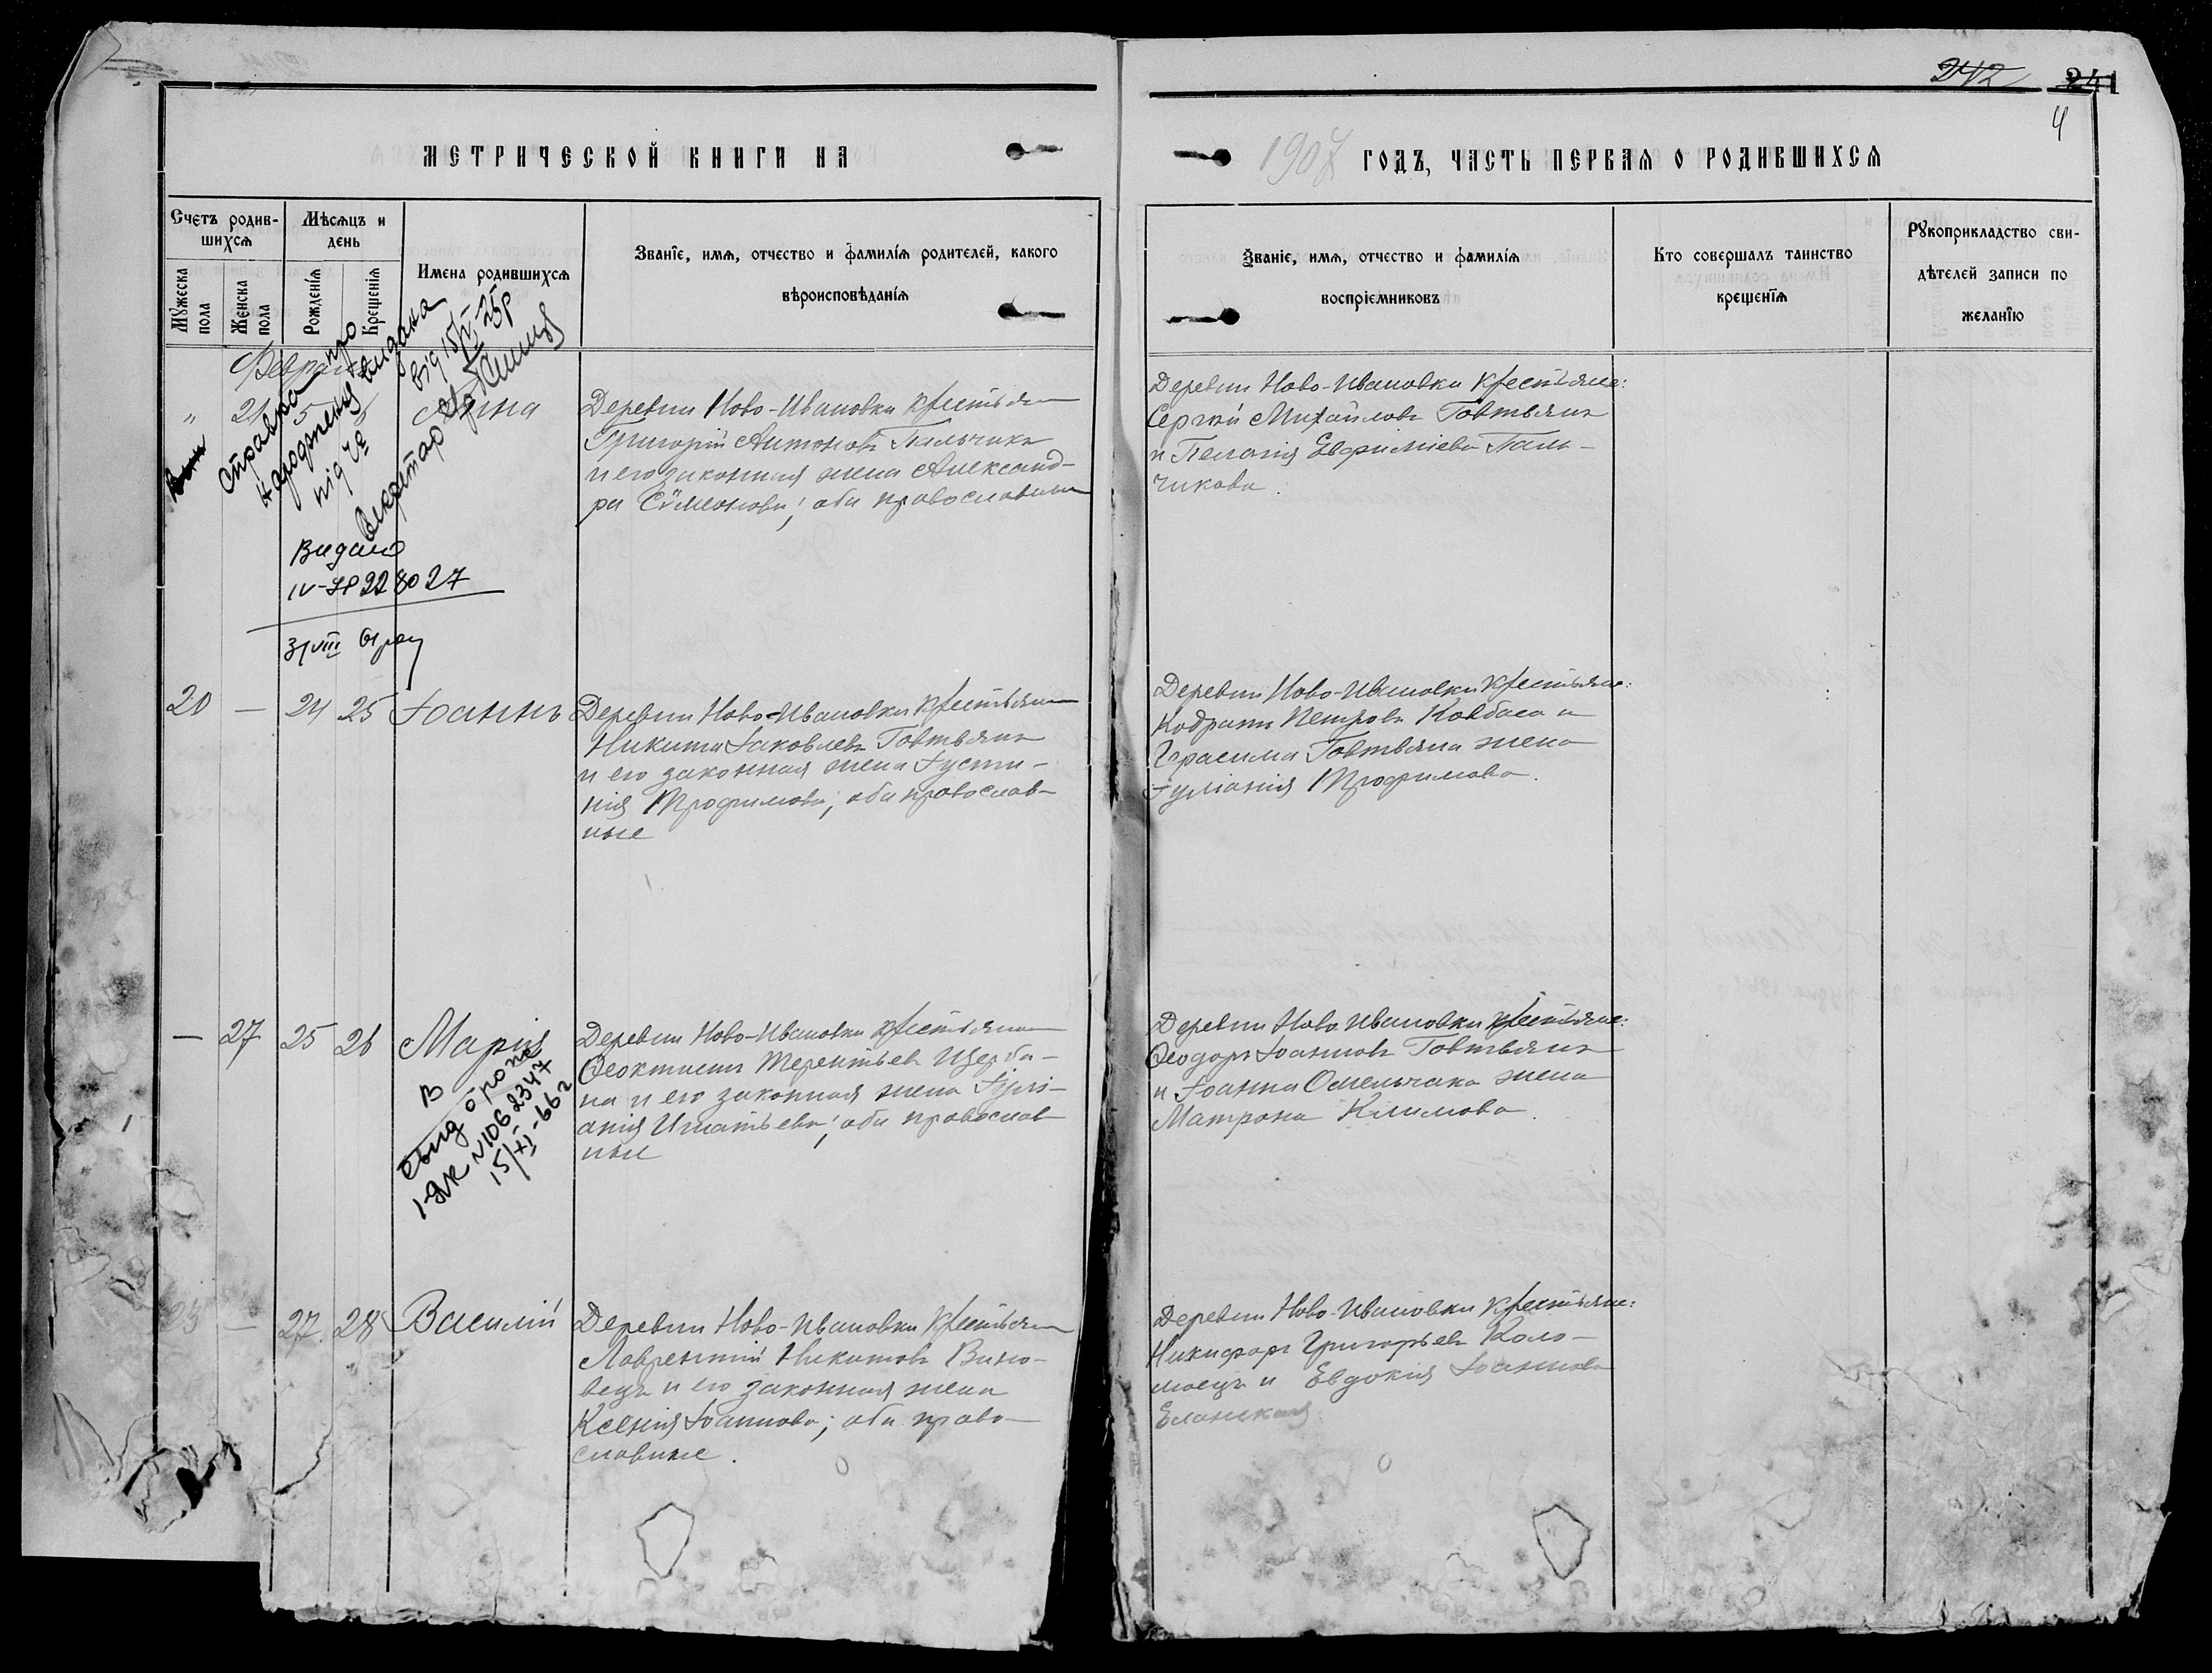 242 241
4
МЕТРИЧЕСКОЙ КНИГИ НА
1907 ГОДЪ, ЧАСТЬ ПЕРВАЯ О РОДИВШИХСЯ
Счетъ родив-
шихся
Мужеска пола
Женска пола
Мѣсяцъ и
день
Рожденія
Крещенія
Имена родившихся
Званіе, имя, отчество и фамилія родителей, какого
вѣроисповѣданія
Званіе, имя, отчество и фамилія
воспріемниковъ
Кто совершалъ таинство
крещенія
Рукоприкладство сви-
дѣтелей записи по
желанію
Справка про
народження видана
від 15/V-25р
Секретар
Видано
IV-ЯР 228027
31 VIII
Деревни Ново-Ивановки крестьянин
Григорій Антоновъ Пальчикъ
и его законная жена Александ-
ра Симеонова; оба православные
Деревни Ново-Ивановки крестьяне:
Сергій Михаиловъ Говтвянъ
и Пелагія Евфиміева Паль-
чикова.
20 — 24 25 Іоаннъ
Деревни Ново-Ивановки крестьянин
Никита Іаковлевъ Говтвянъ
и его законная жена Іусти-
нія Трофимова; оба православ-
ные
Деревни Ново-Ивановки крестьяне:
Кодратъ Петровъ Ковбаса и
Герасима Говтвяна жена
Іуліанія Трофимова.
— 27 25 26 Марія
В
1-ЯК №1062347
15/XI-66г
Деревни Ново-Ивановки крестьянин
Феоктистъ Терентьевъ Щерби-
на и его законная жена Іулі-
анія Игнатьева; оба православ
ные
Деревни Ново-Ивановки крестьяне:
Феодоръ Іоанновъ Говтвянъ
и Іоанна Омельчака жена
Матрона Климова.
23 — 27 28 Василій
Деревни Ново-Ивановки крестьянин
Лаврентій Никитовъ Вино-
вецъ и его законная жена
Ксенія Іоаннова; оба право-
славные.
Деревни Ново-Ивановки крестьяне:
Никифоръ Григорьевъ Коло-
моецъ и Евдокія Іоаннова